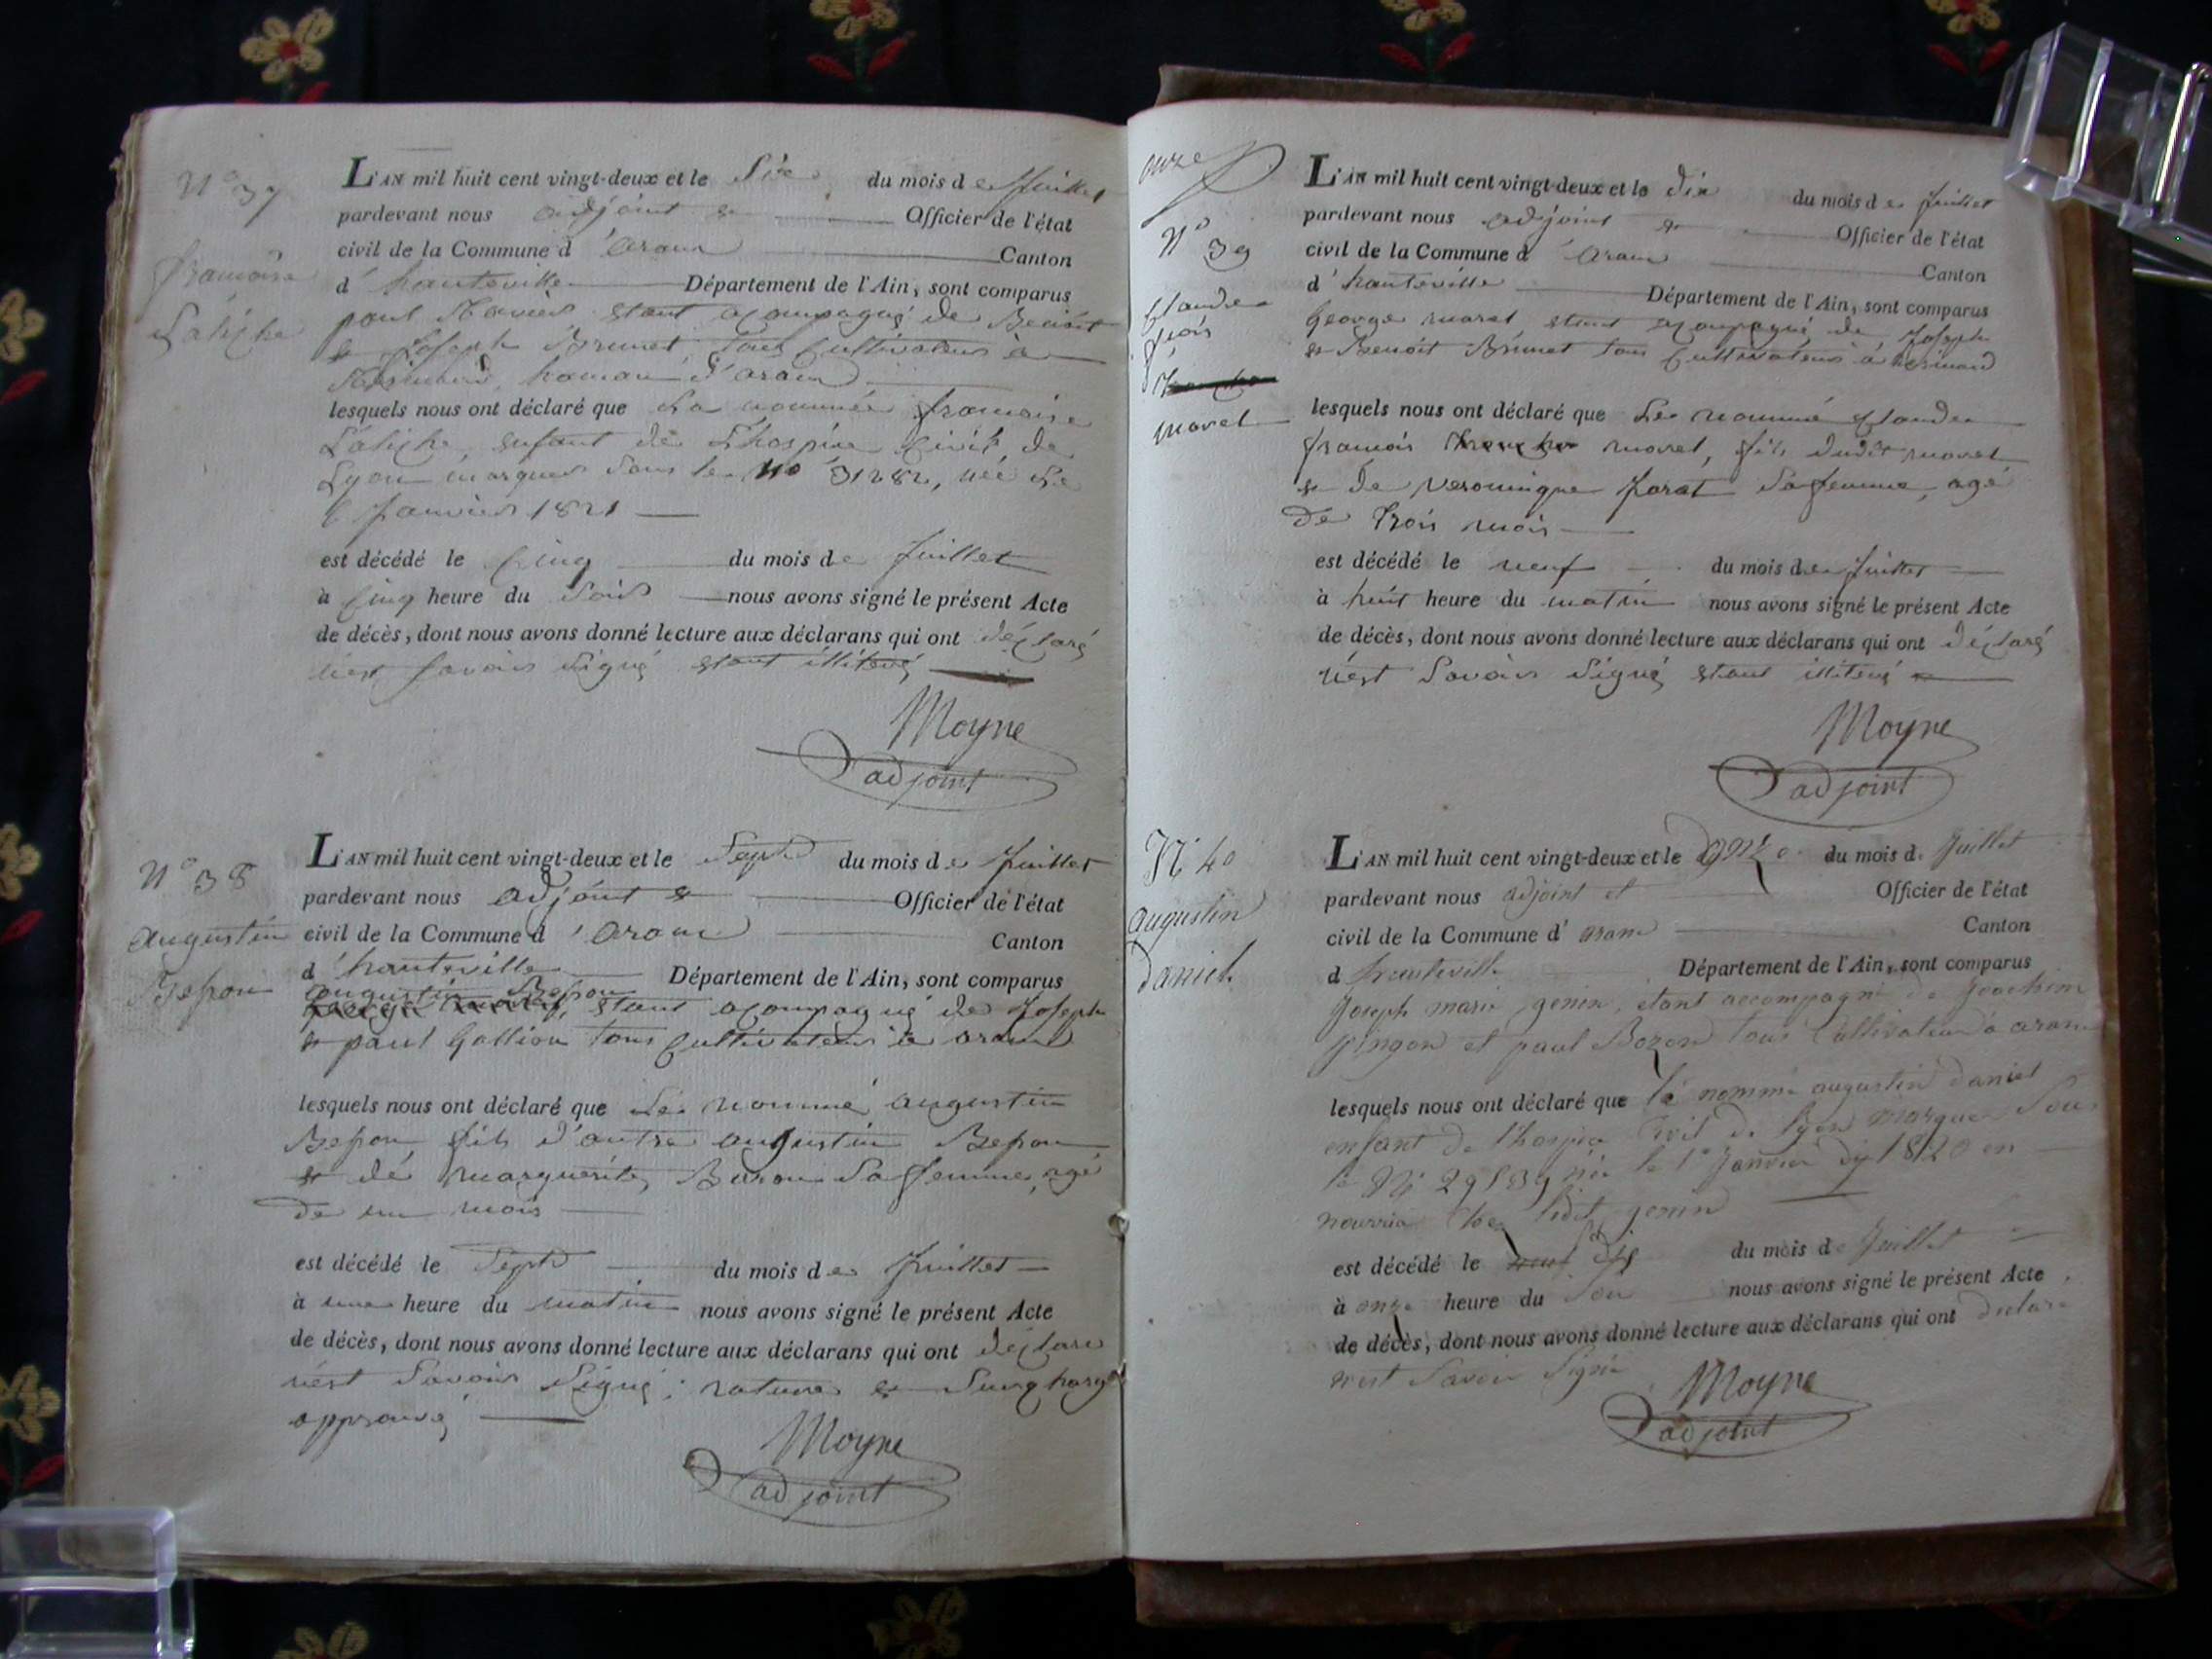 N° 37
françoise
L'AN mil huit cent vingt-deux et le Six du mois de Juillet
pardevant nous adjoint & Officier de l'état
civil de la Commune d'aranc Canton
d'hauteville Département de l'Ain, sont comparus
paul stant acompagné de Benoit
& Joseph Brunet, tous Cultivateurs à
hameau d'aranc
lesquels nous ont déclaré que La nommée françoise
enfant de L'hospice Civil de
Lyon marqué sous le No 31282, née Le
6 Janvier 1821
est décédé le Cinq du mois de Juillet
à Cinq heure du Soir nous avons signé le présent Acte
de décès, dont nous avons donné lecture aux déclarans qui ont déclaré
n'est Savoir Signé stant illiteré
Moyne
adjoint
N° 38
augustin
L'AN mil huit cent vingt-deux et le Septe du mois de Juillet
pardevant nous adjoint & Officier de l'état
civil de la Commune d'aranc Canton
d'hauteville Département de l'Ain, sont comparus
augustin
stant acompagné de Joseph
& paul Gallion tous Cultivateurs à aranc
lesquels nous ont déclaré que Le nommé augustin
fils d'autre augustin
& de marguerite Sa femme, agé
de un mois
est décédé le Septe du mois de Juillet
à une heure du matin nous avons signé le présent Acte
de décès, dont nous avons donné lecture aux déclarans qui ont déclaré
n'est Savoir Signé; rature & Surcharge
approuvé
Moyne
adjoint
onze
N° 39
Claude
fçois
morel
L'AN mil huit cent vingt-deux et le dix du mois de Juillet
pardevant nous adjoint & Officier de l'état
civil de la Commune d'aranc Canton
d'hauteville Département de l'Ain, sont comparus
George morel, stant acompagné de Joseph
& Benoit Brunet tous Cultivateurs à
lesquels nous ont déclaré que Le nommé Claude
françois morel, fils dudit morel
& de veronique Sa femme, agé
de trois mois
est décédé le neuf du mois de Juillet
à huit heure du matin nous avons signé le présent Acte
de décès, dont nous avons donné lecture aux déclarans qui ont déclaré
n'est Savoir Signé stant illiteré
Moyne
adjoint
N° 40
augustin
daniel
L'AN mil huit cent vingt-deux et le onze du mois de Juillet
pardevant nous adjoint et Officier de l'état
civil de la Commune d'aranc Canton
d'hauteville Département de l'Ain, sont comparus
Joseph marie genin, étant accompagné de Joachim
pingon et paul Bozon tous Cultivateur à aranc
lesquels nous ont déclaré que le nommé augustin daniel
enfant de l'hospice Civil de lyon marqué Sous
le N° née le 1er Janvier 1820 en
nourrice chez ledit genin
est décédé le dix du mois de Juillet
à onze heure du Soir nous avons signé le présent Acte
de décès, dont nous avons donné lecture aux déclarans qui ont declaré
n'est Savoir Signé
Moyne
adjoint